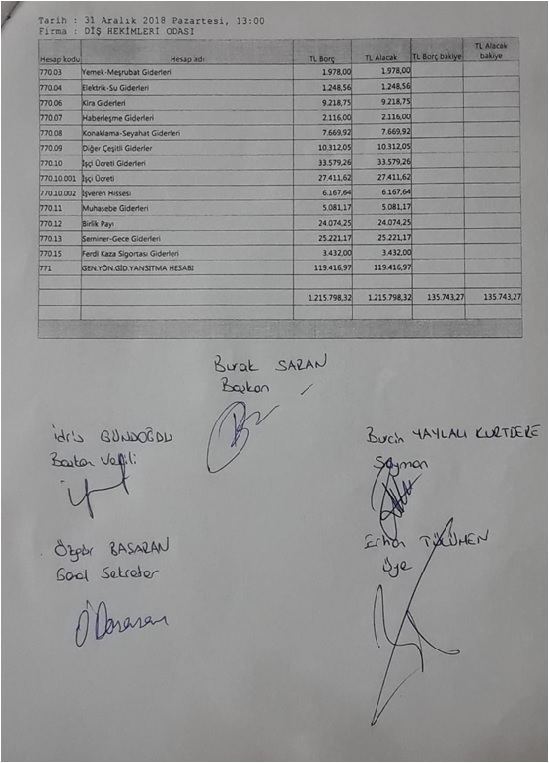 Tarih : 31 Aralık 2018 Pazartesi, 13:00
Firma : DİŞ HEKİMLERİ ODASI
Hesap kodu Hesap adı TL Borç TL Alacak TL Borç bakiye TL Alacak bakiye
770.03 Yemek-Meşrubat Giderleri 1.978,00 1.978,00
770.04 Elektrik-Su Giderleri 1.248,56 1.248,56
770.06 Kira Gderleri 9.218,75 9.218,75
770.07 Haberleşme Giderleri 2.116,00 2.116,00
770.08 Konaklama-Seyahat Giderleri 7.669,92 7.669,92
770.09 Diğer Çeşitli Giderler 10.312,05 10.312,05
770.10 İşçi Ücreti Giderleri 33.579,26 33.579,26
770.10.001 İşçi Ücreti 27.411,62 27.411,62
770.10.002 İşveren Hissesi 6.167,64 6.167,64
770.11 Muhasebe Giderleri 5.081,17 5.081,17
770.12 Birlik Payı 24.074,25 24.074,25
770.13 Seminer-Gece Giderleri 25.221,17 25.221,17
770.15 Ferdi Kaza Sigortası Giderleri 3.432,00 3.432,00
771 GEN.YÖN.GİD.YANSITMA HESABI 119.416,97 119.416,97
1.215.798,32 1.215.798,32 135.743,27 135.743,27
Burak SARAN
Başkan
İdris GÜNDOĞDU
Başkan Vekili
Burcin YAYLALI KURTDERE
Sayman
Özgür BAŞARAN
Genel Sekreter
Erhan TÜLÜMEN
Üye